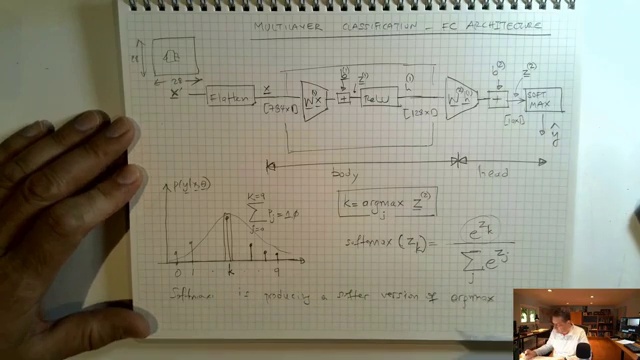 MULTILAYER CLASSIFICATION - FC ARCHITECTURE
28
28
X
Flatten
x
[784x1]
W(1) x
b(1)
+
z(1)
ReLU
h(1)
[128x1]
W(2) h(1)
b(2)
+
z(2)
[10x1]
SOFT MAX
ŷ
body
head
p(y|x,θ)
K=9
Σ Pj = 1.0
j=0
0 1 k 9
k = argmax z(2)
j
softmax (zk) = e^zk / Σ e^zj
j
Softmax is producing a softer version of argmax